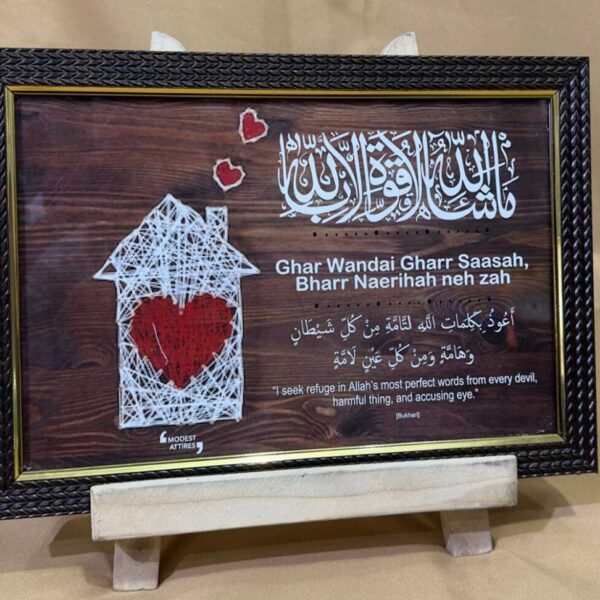 ما شاء الله لا قوة إلا بالله
Ghar Wandai Gharr Saasah,
Bharr Naerihah neh zah
أَعُوذُ بِكَلِمَاتِ اللَّهِ التَّامَّةِ مِنْ كُلِّ شَيْطَانٍ
وَهَامَّةٍ وَمِنْ كُلِّ عَيْنٍ لَامَّةٍ
"I seek refuge in Allah's most perfect words from every devil,
harmful thing, and accusing eye."
[Bukhari]
MODEST
ATTIRES